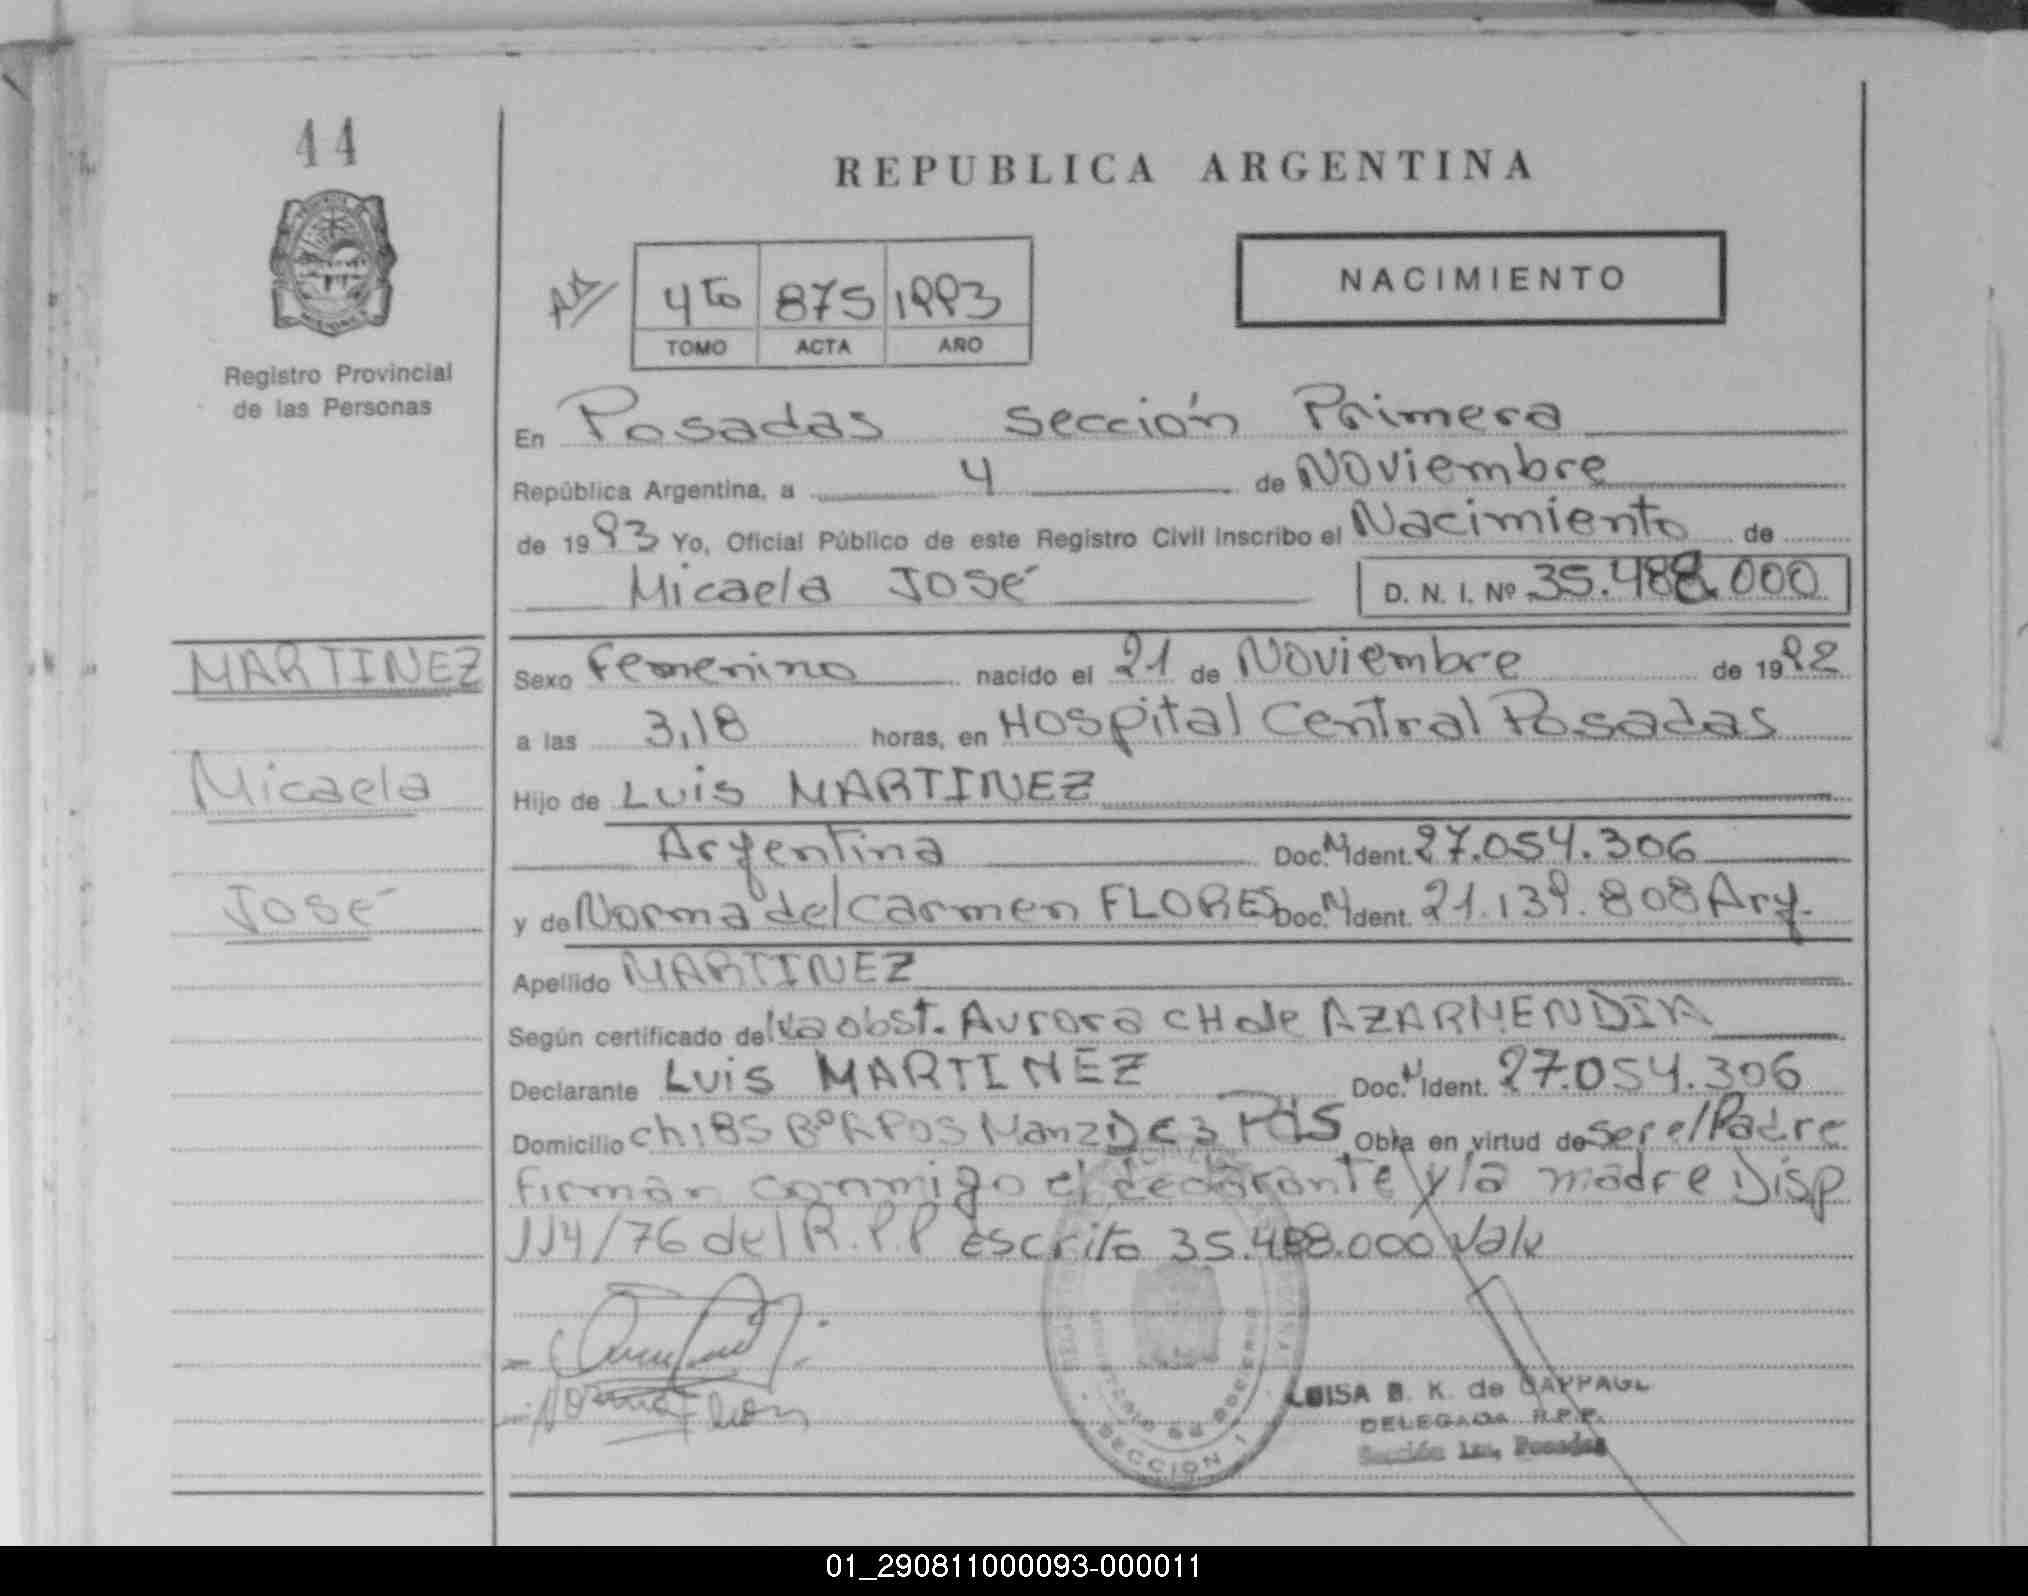 44
REPUBLICA ARGENTINA
4to 875 1993
TOMO ACTA AÑO
NACIMIENTO
Registro Provincial
de las Personas
En Posadas sección Primera
República Argentina, a 4 de Noviembre
de 1993 Yo, Oficial Público de este Registro Civil Inscribo el Nacimiento de
Micaela José D. N. I. Nº 35.488.000
MARTINEZ
Sexo femenino nacido el 21 de Noviembre de 1992
a las 3,18 horas, en Hospital Central Posadas
Micaela
Hijo de Luis MARTINEZ
Argentina Doc. N Ident. 27.054.306
José
y de Norma del Carmen FLORES Doc. N Ident. 21.139.808 Arg.
Apellido MARTINEZ
Según certificado de la obst. Aurora CH de AZARMENDIA
Declarante Luis MARTINEZ Doc. N Ident. 27.054.306
Domicilio Pds Obra en virtud de ser el Padre
firman conmigo el declarante y la madre Disp
114/76 del R.P.P escrito 35.488.000 Vale
LUISA B. K. de
DELEGADA R.P.P.
Sección 1ra, Posadas
SECCION 1
01_290811000093-000011